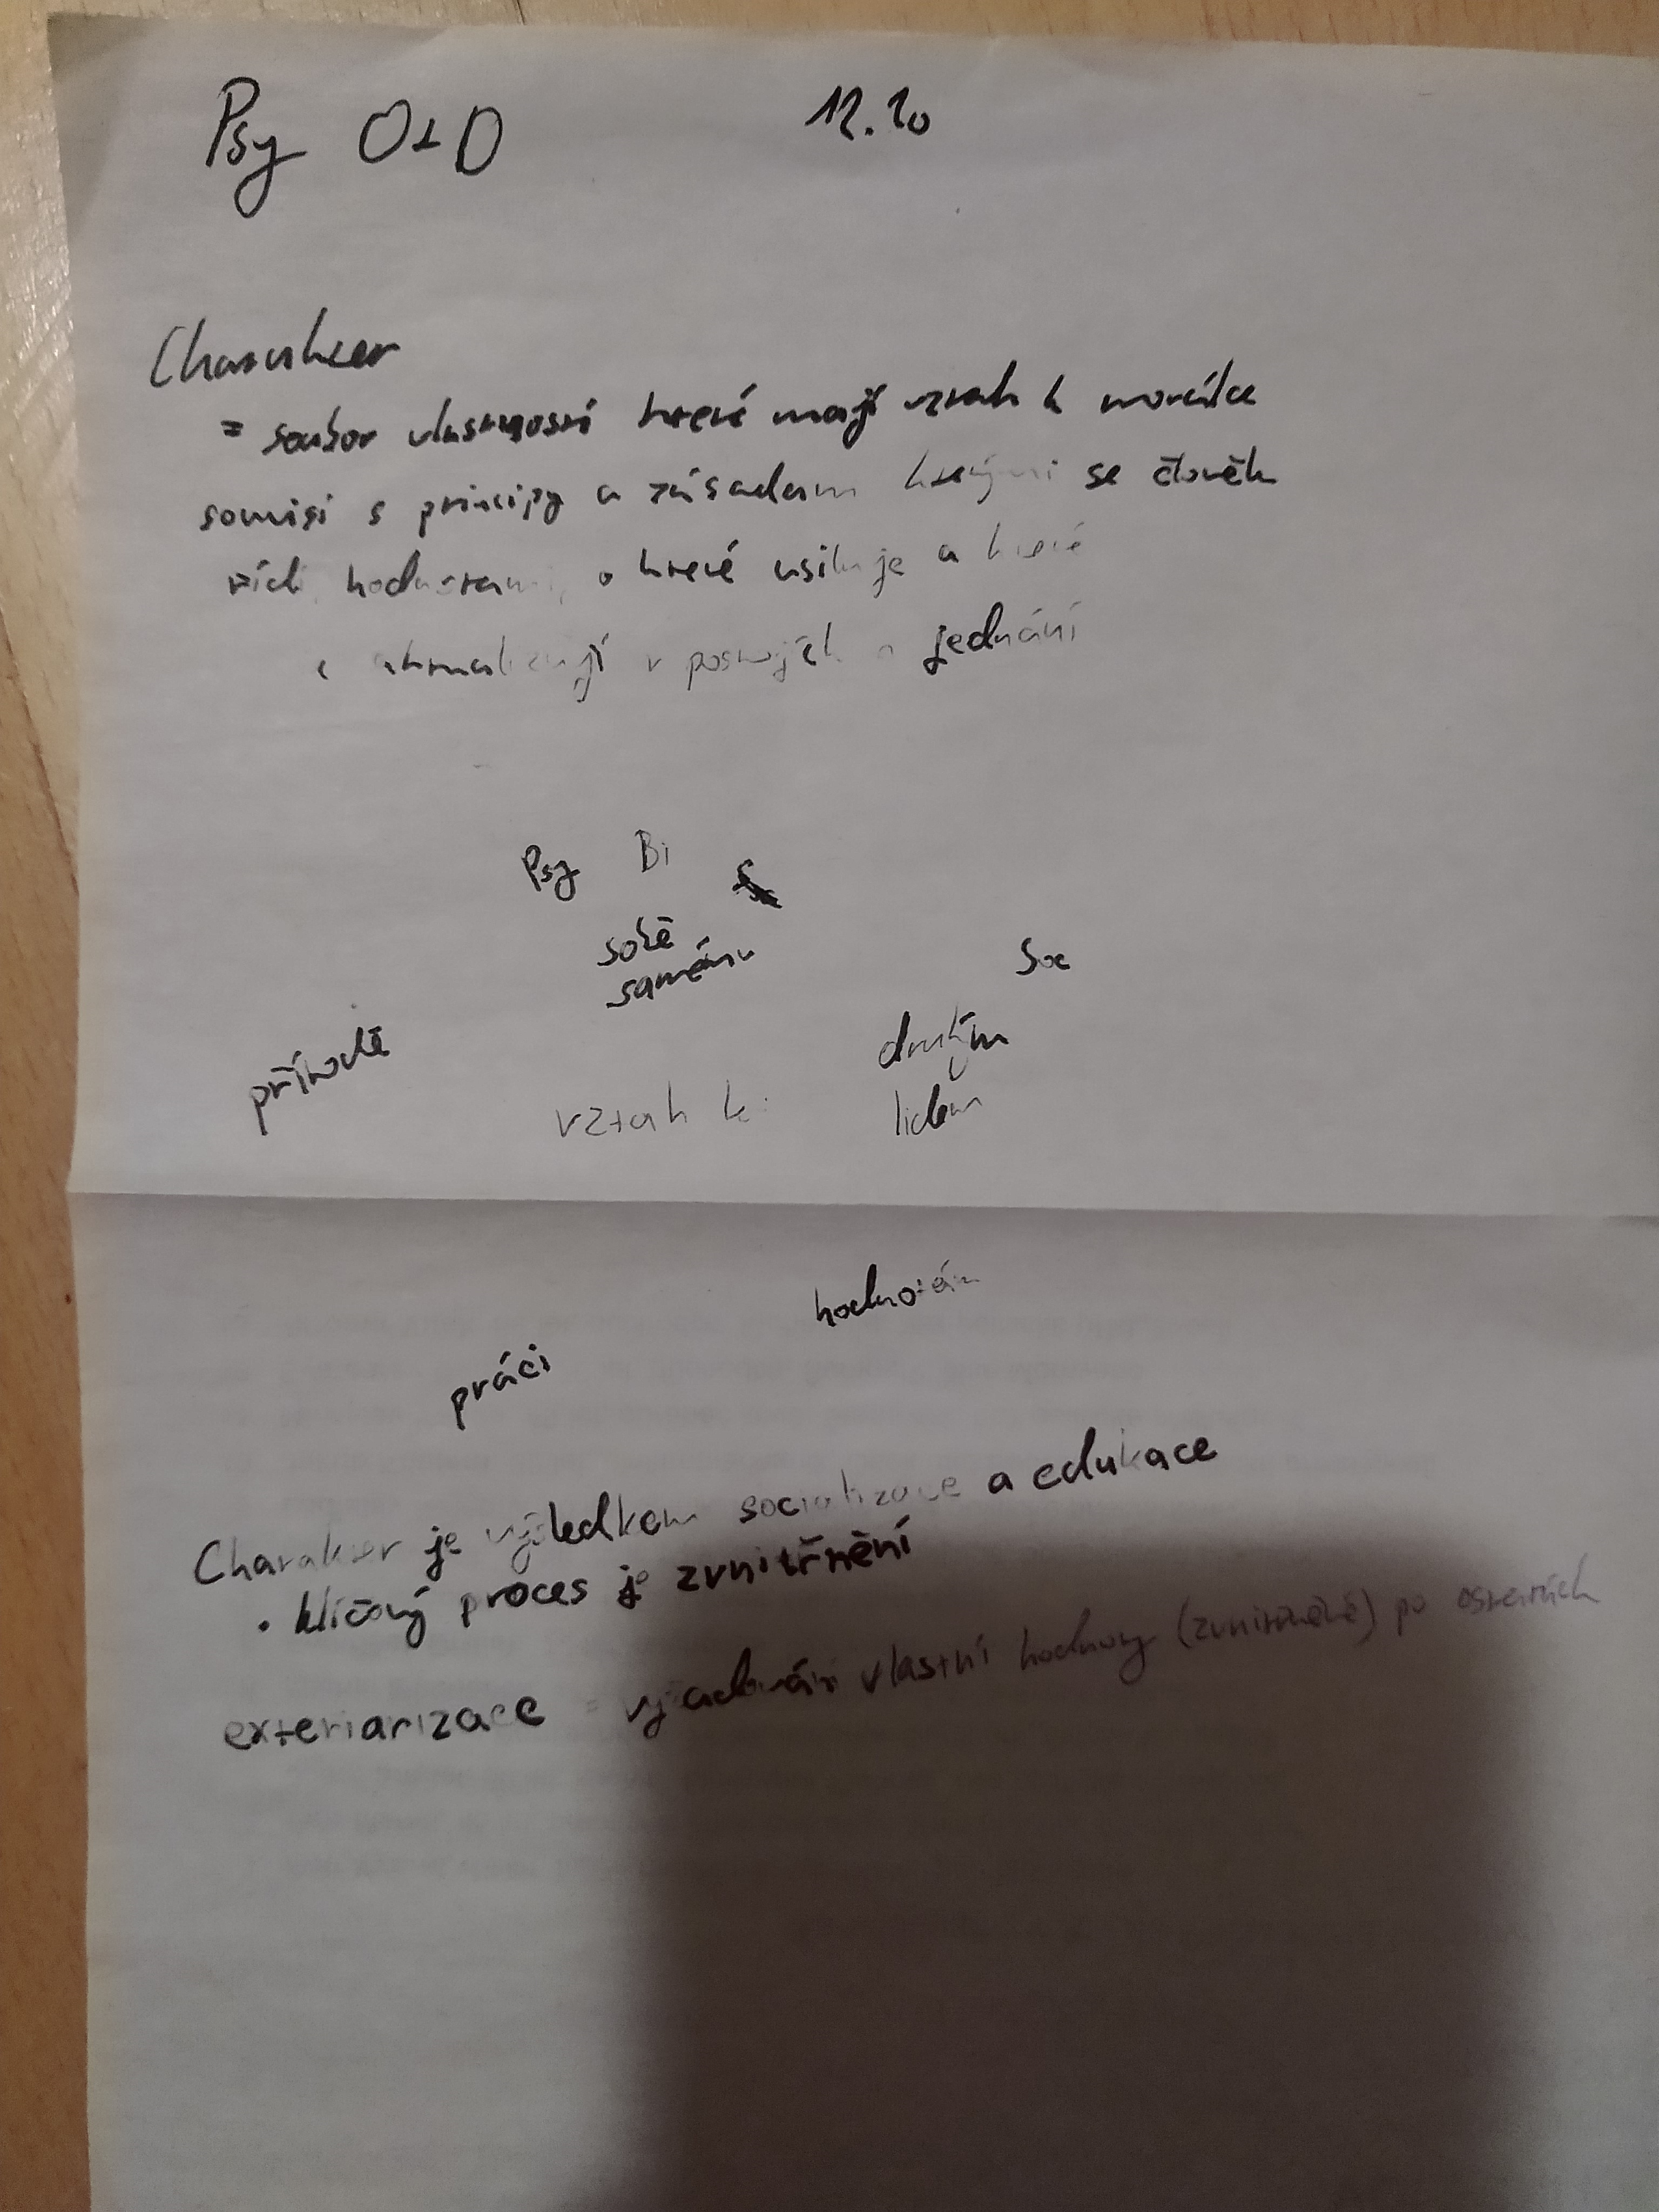 Psy O+D 12.10
Charakter
= soubor vlastností které mají vztah k morálce
souvisí s principy a zásadami kterými se člověk
řídí, hodnotami, o které usiluje a které
aktualizují v postojích a jednání
Psy Bi
sobě
samému
Soc
přírodě
druhým
vztah k:
lidem
hodnotám
práci
Charakter je výsledkem socializace a edukace
• klíčový proces je zvnitřnění
exteriarizace = vyžadování vlastní hodnoty (zvnitřněné) po ostatních